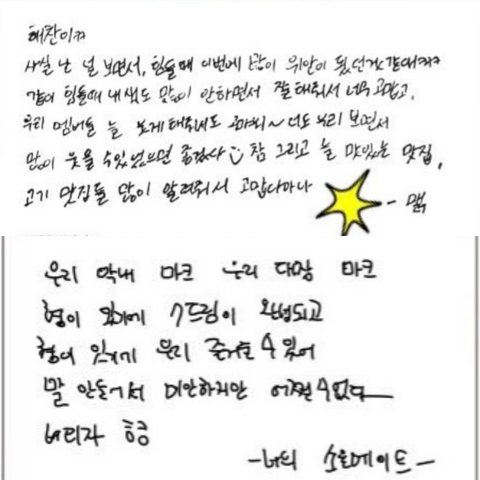 해찬이ㅋㅋ
사실 난 널 보면서, 힘들때 이번에 많이 위안이 됬던거 같애ㅋㅋㅋ
같이 힘들때 내색도 많이 안하면서 잘해줘서 너무 고맙고,
우리 멤버들 늘 웃게해줘서도 고마워~ 너도 우리 보면서
많이 웃을 수 있었으면 좋겠다 참 그리고 늘 맛있는 맛집,
고기 맛집들 많이 알려줘서 고맙다마
- 맑
우리 막내 마크 우리 대장 마크
형이 있기에 7드림이 완성되고
형이 있기에 우리 즐거울 수 있어
말 안들어서 미안하지만 어쩔수없다
버티자 흥
- 너의 소울메이트 -